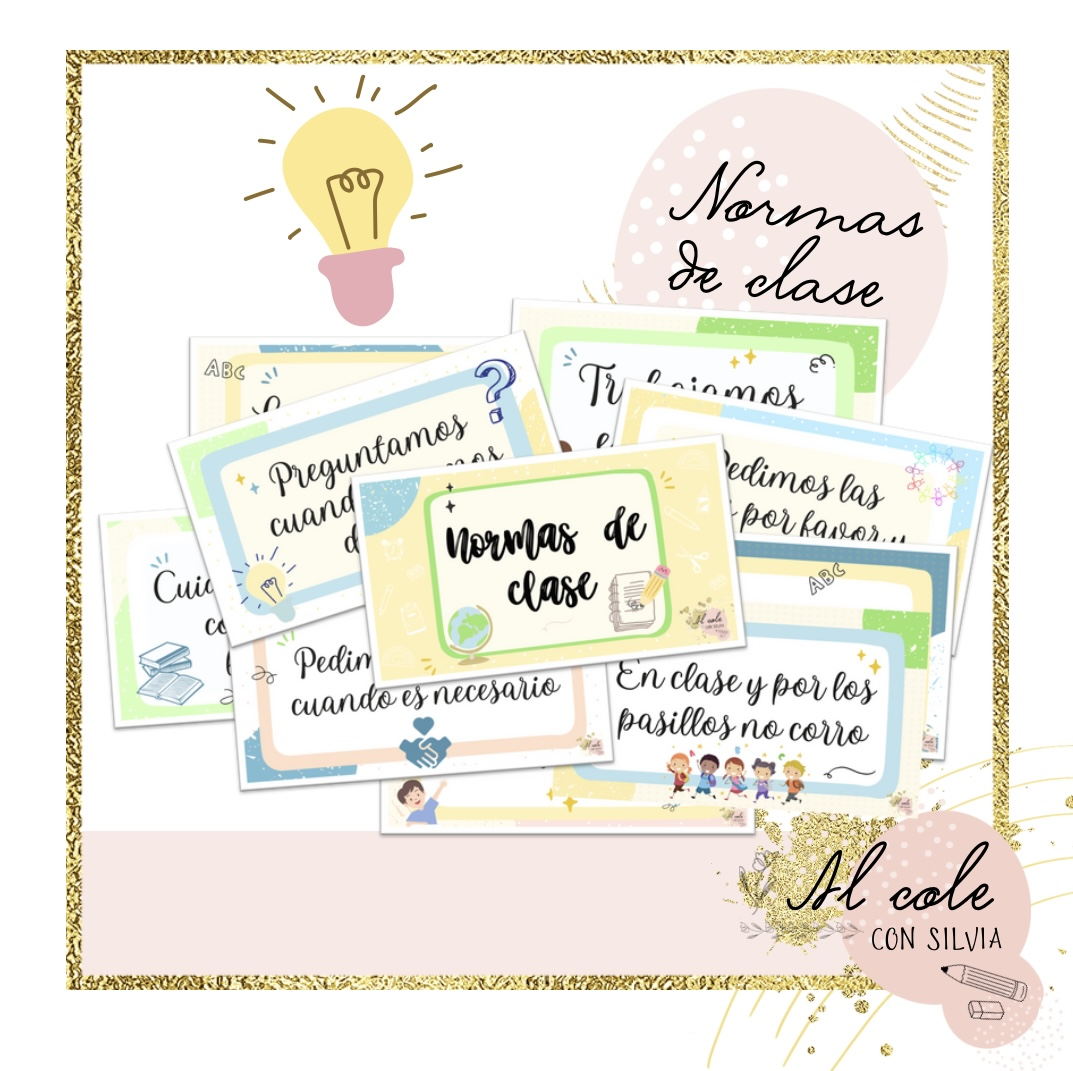 Normas
de clase
ABC
Trabajamos
Preguntamos
cuand
Pedimos las
por favor y
normas de
clase
Al cole
CON SILVIA
ABC
Pedim
cuando es necesario
En clase y por los
pasillos no corro
Al cole
CON SILVIA